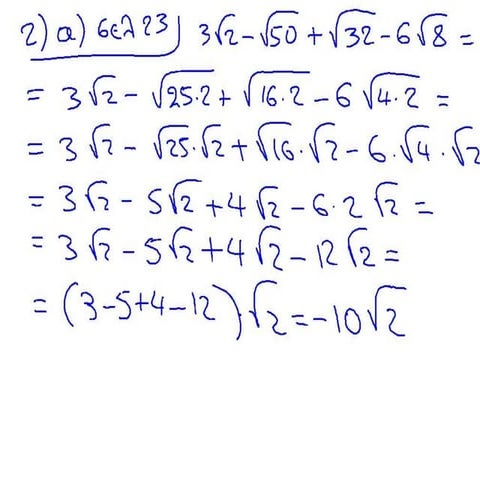 2) α) σελ 23) 3√2 - √50 + √32 - 6√8 =
= 3√2 - √25·2 + √16·2 - 6√4·2 =
= 3√2 - √25·√2 + √16·√2 - 6·√4·√2
= 3√2 - 5√2 + 4√2 - 6·2√2 =
= 3√2 - 5√2 + 4√2 - 12√2 =
= (3-5+4-12)·√2 = -10√2